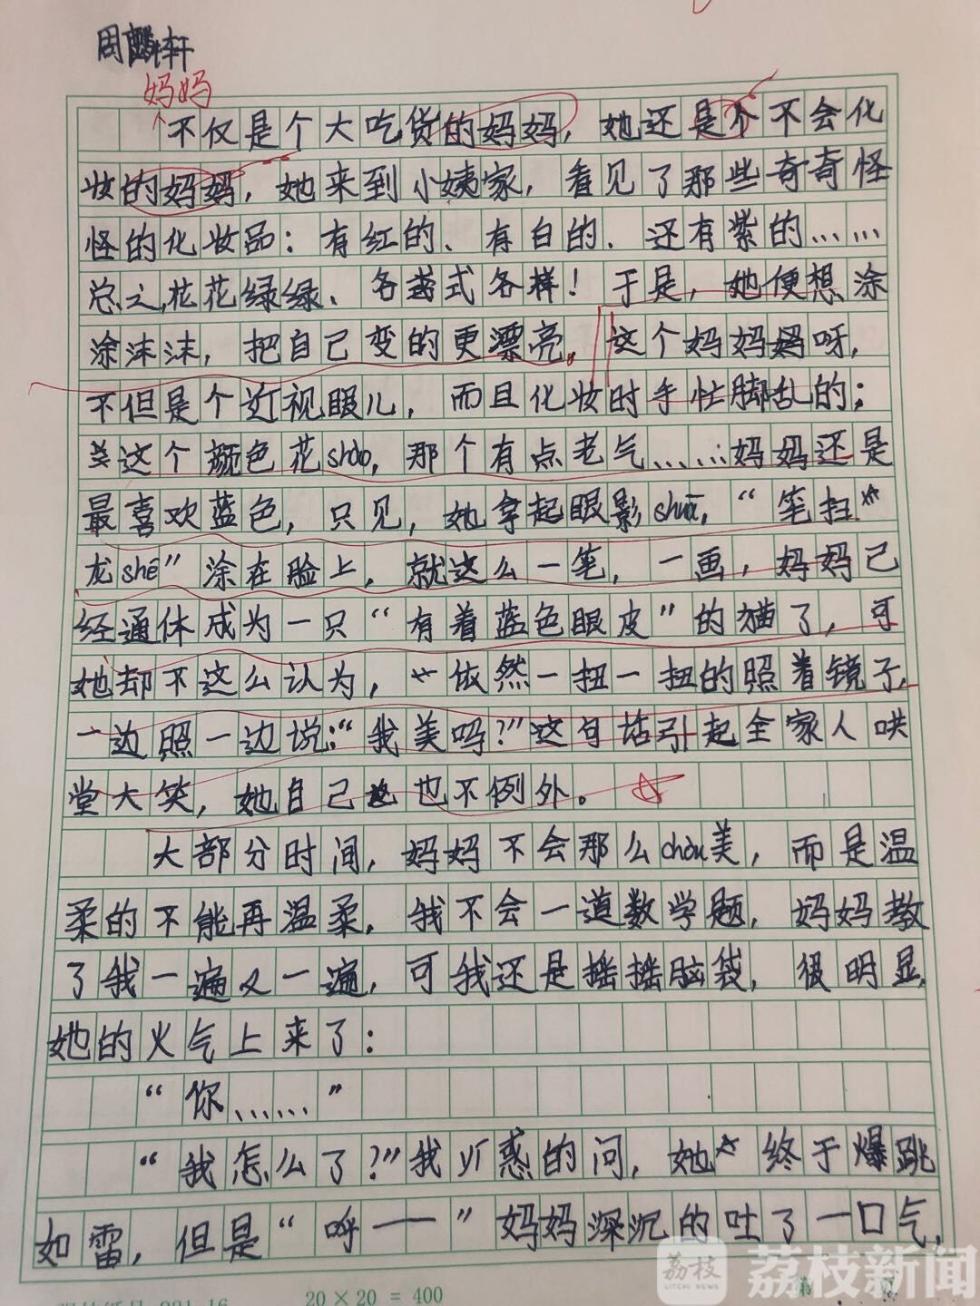 周麟轩
妈妈
不仅是个大吃货的妈妈，她还是个不会化
妆的妈妈，她来到小姨家，看见了那些奇奇怪
怪的化妆品：有红的、有白的、还有紫的……
总之，花花绿绿、各式各样！于是，她便想涂
涂沫沫，把自己变的更漂亮。这个妈妈呀，
不但是个近视眼儿，而且化妆时手忙脚乱的；
这个颜色花shào，那个有点老气……妈妈还是
最喜欢蓝色，只见，她拿起眼影shuā，“笔扫
龙shé”涂在脸上，就这么一笔，一画，妈妈已
经通体成为一只“有着蓝色眼皮”的猫了，可
她却不这么认为，依然一扭一扭的照着镜子，
一边照一边说：“我美吗？”这句话引起全家人哄
堂大笑，她自己也不例外。
大部分时间，妈妈不会那么chòu美，而是温
柔的不能再温柔，我不会一道数学题，妈妈教
了我一遍又一遍，可我还是摇摇脑袋，很明显，
她的火气上来了：
“你……”
“我怎么了？”我疑惑的问，她终于爆跳
如雷，但是“呼——”妈妈深沉的吐了一口气，
20×20=400
荔枝
LITCHI NEWS
荔枝新闻